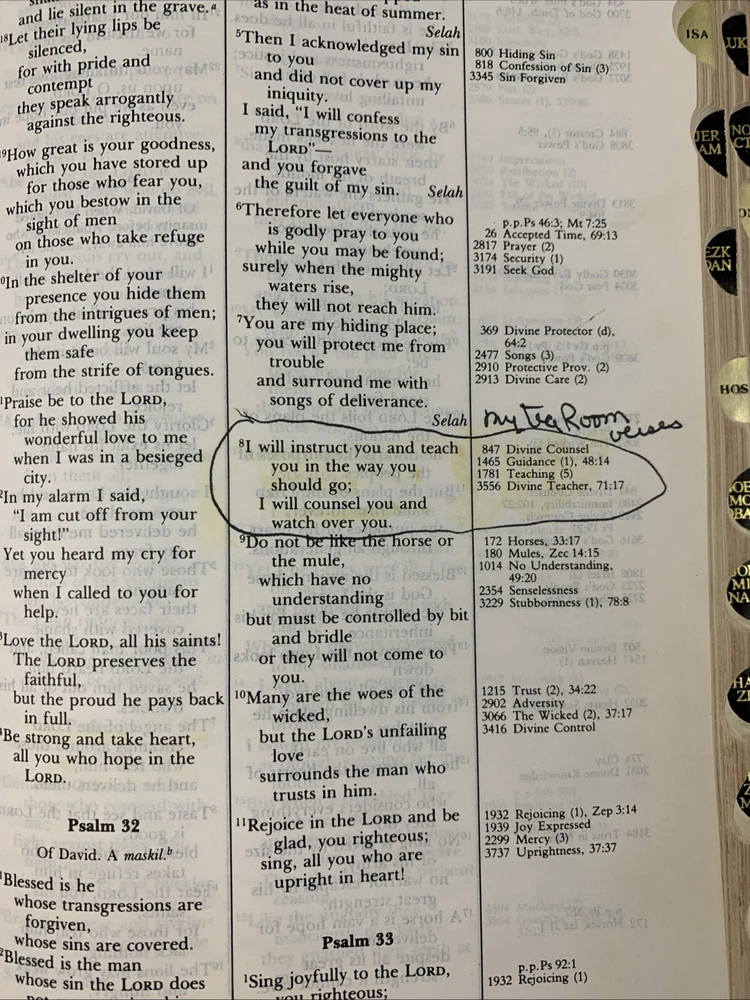 and lie silent in the grave.ª
18Let their lying lips be
silenced,
for with pride and
contempt
they speak arrogantly
against the righteous.
19How great is your goodness,
which you have stored up
for those who fear you,
which you bestow in the
sight of men
on those who take refuge
in you.
0In the shelter of your
presence you hide them
from the intrigues of men;
in your dwelling you keep
them safe
from the strife of tongues.
1Praise be to the LORD,
for he showed his
wonderful love to me
when I was in a besieged
city.
2In my alarm I said,
"I am cut off from your
sight!"
Yet you heard my cry for
mercy
when I called to you for
help.
3Love the LORD, all his saints!
The LORD preserves the
faithful,
but the proud he pays back
in full.
4Be strong and take heart,
all you who hope in the
LORD.
Psalm 32
Of David. A maskil.b
1Blessed is he
whose transgressions are
forgiven,
whose sins are covered.
2Blessed is the man
whose sin the LORD does
as in the heat of summer.
Selah
5Then I acknowledged my sin
to you
and did not cover up my
iniquity.
I said, "I will confess
my transgressions to the
LORD"—
and you forgave
the guilt of my sin. Selah
6Therefore let everyone who
is godly pray to you
while you may be found;
surely when the mighty
waters rise,
they will not reach him.
7You are my hiding place;
you will protect me from
trouble
and surround me with
songs of deliverance.
Selah
8I will instruct you and teach
you in the way you
should go;
I will counsel you and
watch over you.
9Do not be like the horse or
the mule,
which have no
understanding
but must be controlled by bit
and bridle
or they will not come to
you.
10Many are the woes of the
wicked,
but the LORD's unfailing
love
surrounds the man who
trusts in him.
11Rejoice in the LORD and be
glad, you righteous;
sing, all you who are
upright in heart!
Psalm 33
1Sing joyfully to the LORD,
you righteous;
800 Hiding Sin
818 Confession of Sin (3)
3345 Sin Forgiven
p.p.Ps 46:3; Mt 7:25
26 Accepted Time, 69:13
2817 Prayer (2)
3174 Security (1)
3191 Seek God
369 Divine Protector (d),
64:2
2477 Songs (3)
2910 Protective Prov. (2)
2913 Divine Care (2)
my tea Room
verses
847 Divine Counsel
1465 Guidance (1), 48:14
1781 Teaching (5)
3556 Divine Teacher, 71:17
172 Horses, 33:17
180 Mules, Zec 14:15
1014 No Understanding,
49:20
2354 Senselessness
3229 Stubbornness (1), 78:8
1215 Trust (2), 34:22
2902 Adversity
3066 The Wicked (2), 37:17
3416 Divine Control
1932 Rejoicing (1), Zep 3:14
1939 Joy Expressed
2299 Mercy (3)
3737 Uprightness, 37:37
p.p.Ps 92:1
1932 Rejoicing (1)
ISA
JER
LAM
EZK
DAN
HOS